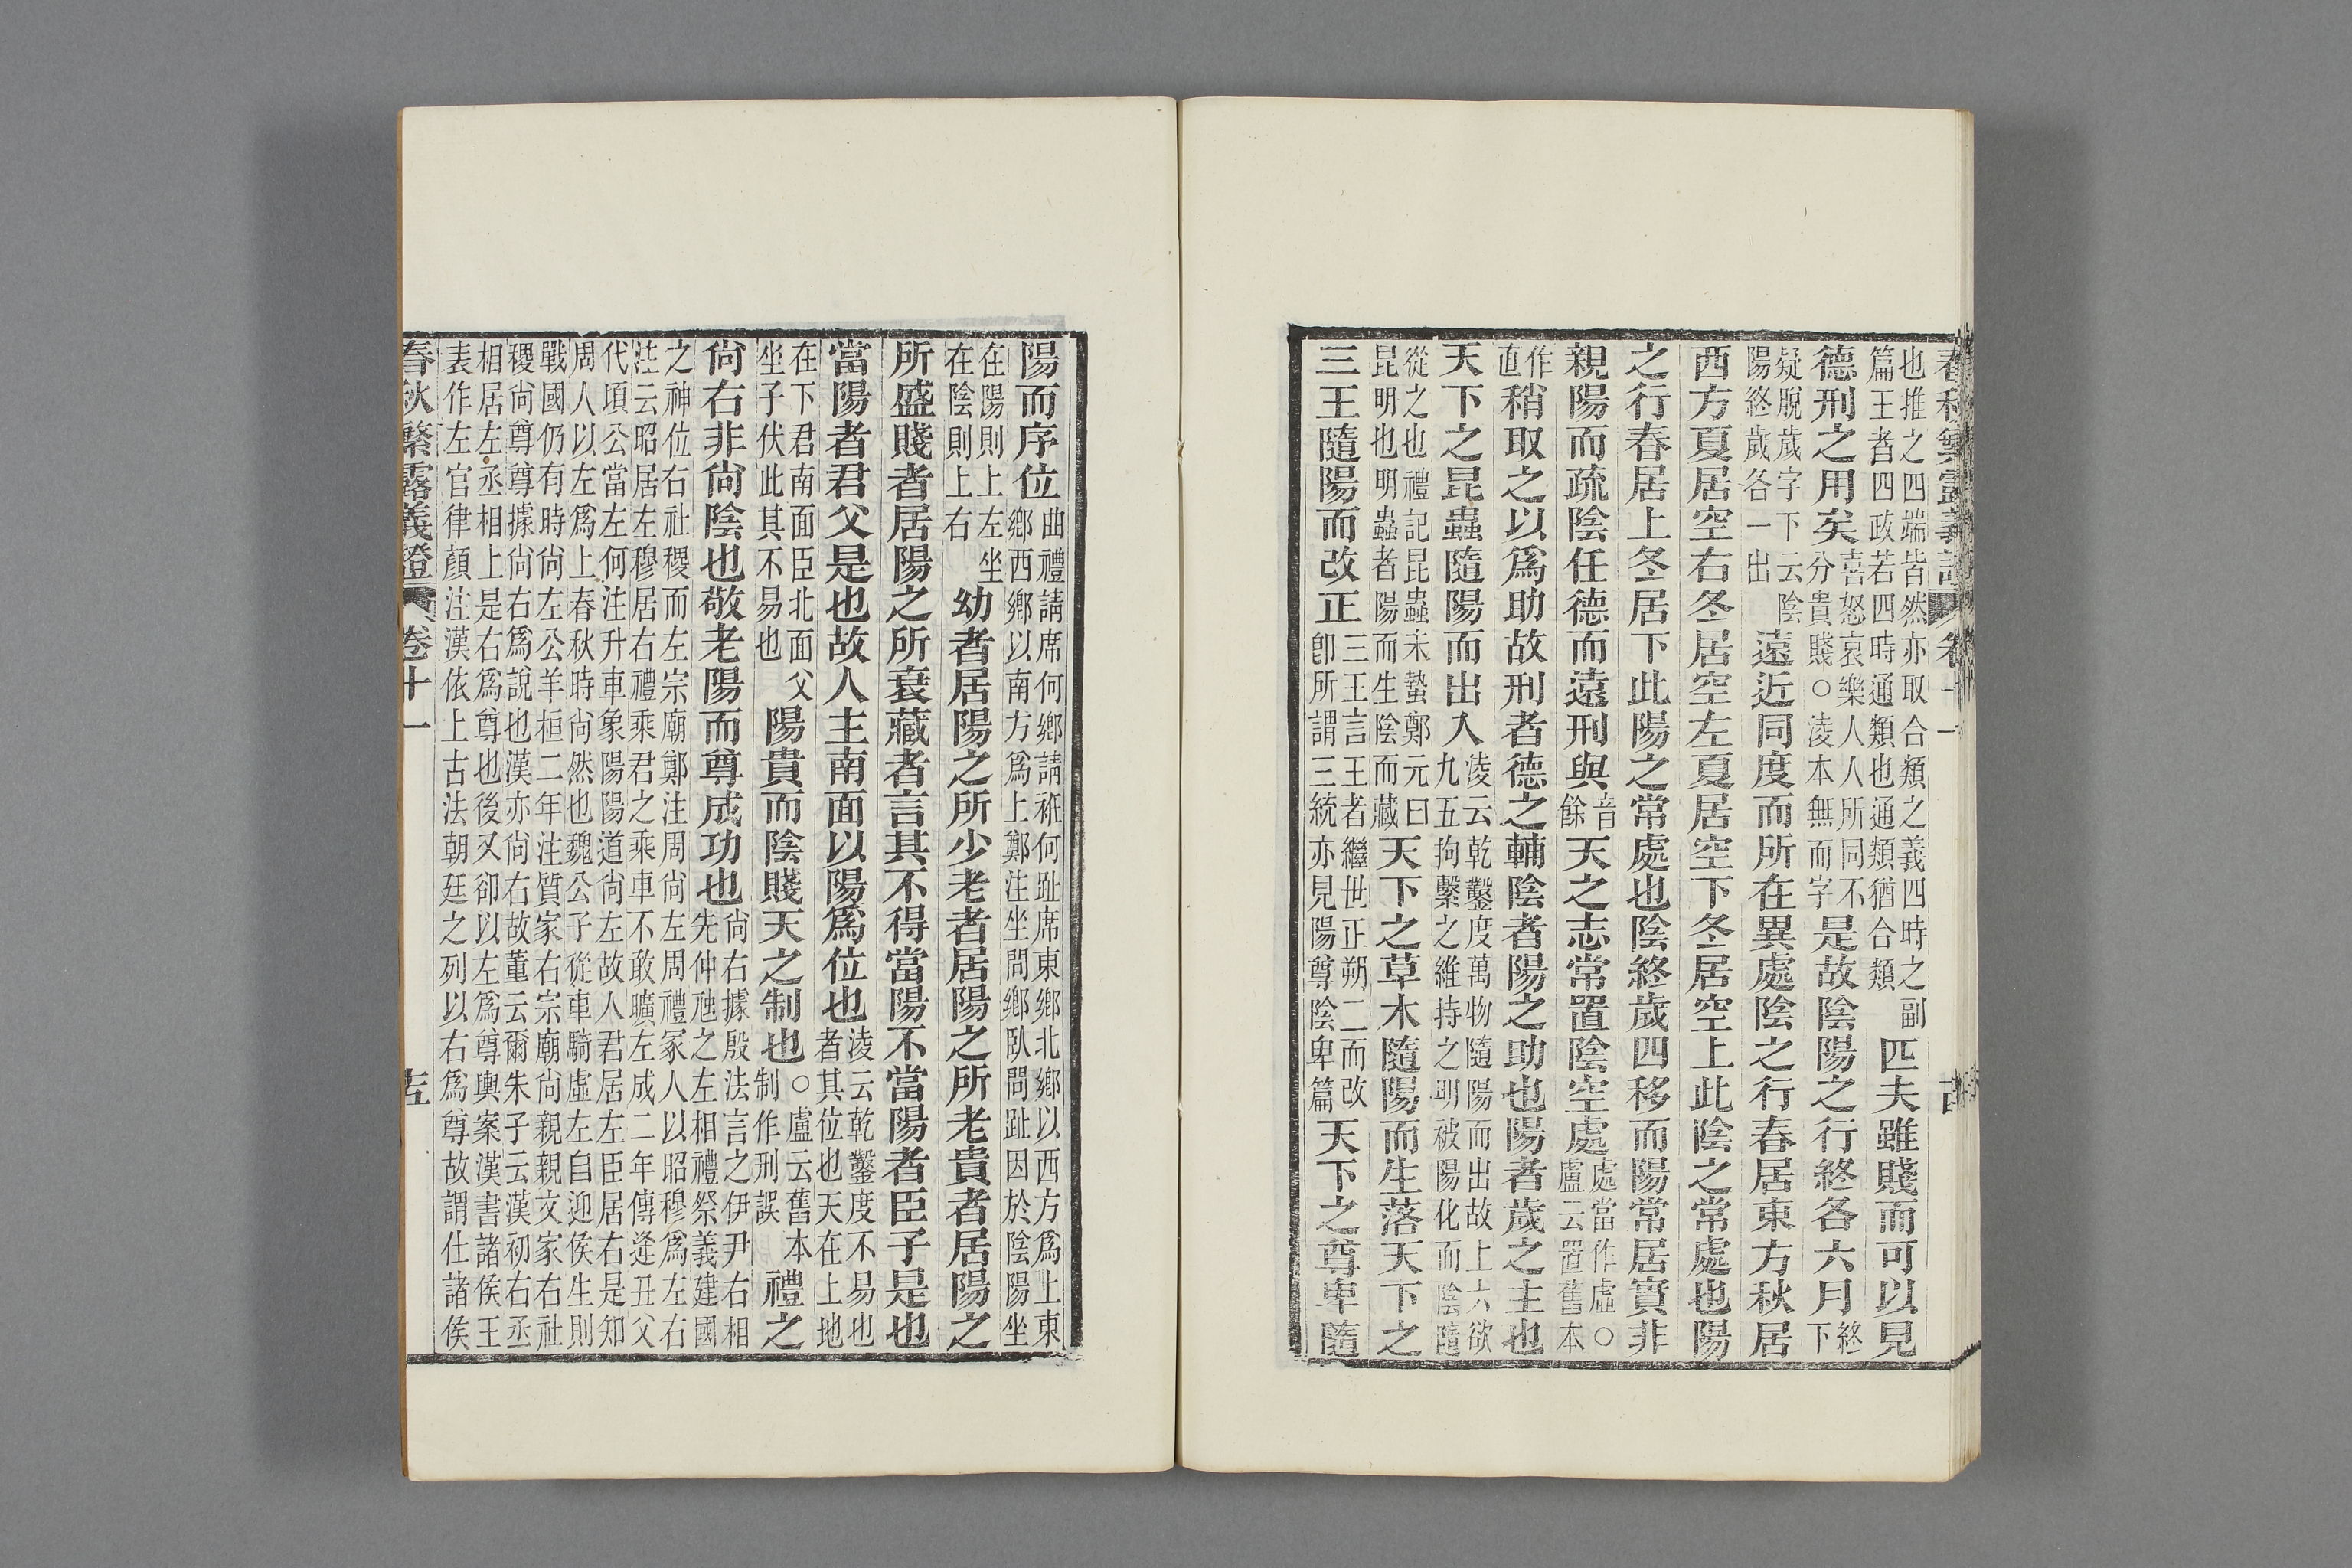 春秋繁露義證 卷十一 十四
也推之四端皆然亦取合類之義四時之副
篇王者四政若四時通類也通類猶合類
匹夫雖賤而可以見
德刑之用矣
喜怒哀樂人人所同不
分貴賤○凌本無而字
是故陰陽之行終各六月
終
下
疑脫歲字下云陰
陽終歲各一出
遠近同度而所在異處陰之行春居東方秋居
西方夏居空右冬居空左夏居空下冬居空上此陰之常處也陽
之行春居上冬居下此陽之常處也陰終歲四移而陽常居實非
親陽而疏陰任德而遠刑與
音
餘
天之志常置陰空處
處當作虛○
盧云置舊本
作
直
稍取之以爲助故刑者德之輔陰者陽之助也陽者歲之主也
天下之昆蟲隨陽而出入
淩云乾鑿度萬物隨陽而出故上六欲
九五拘繫之維持之明被陽化而陰隨
從之也禮記昆蟲未蟄鄭元曰
昆明也明蟲者陽而生陰而藏
天下之草木隨陽而生落天下之
三王隨陽而改正
三王言王者繼世正朔二而改
卽所謂三統亦見陽尊陰卑篇
天下之尊卑隨
陽而序位
曲禮請席何鄉請袵何趾席東鄉北鄉以西方爲上東
鄉西鄉以南方爲上鄭注坐問鄉臥問趾因於陰陽坐
在陽則上左坐
在陰則上右
幼者居陽之所少老者居陽之所老貴者居陽之
所盛賤者居陽之所衰藏者言其不得當陽不當陽者臣子是也
當陽者君父是也故人主南面以陽爲位也
淩云乾鑿度不易也
者其位也天在上地
在下君南面臣北面父
坐子伏此其不易也
陽貴而陰賤天之制也
○盧云舊本
制作刑誤
禮之
尙右非尙陰也敬老陽而尊成功也
尙右據殷法言之伊尹右相
先仲虺之左相禮祭義建國
之神位右社稷而左宗廟鄭注周尙左周禮冢人以昭穆爲左右
注云昭居左穆居右禮乘君之乘車不敢曠左成二年傳逢丑父
代頃公當左何注升車象陽陽道尙左故人君居左臣居右是知
周人以左爲上春秋時尙然也魏公子從車騎虛左自迎侯生則
戰國仍有時尙左公羊桓二年注質家右宗廟尙親親文家右社
稷尙尊尊據尙右爲說也漢亦尙右故董云爾朱子云漢初右丞
相居左丞相上是右爲尊也後又卻以左爲尊輿案漢書諸侯王
表作左官律顏注漢依上古法朝廷之列以右爲尊故謂仕諸侯
春秋繁露義證 卷十一 十五